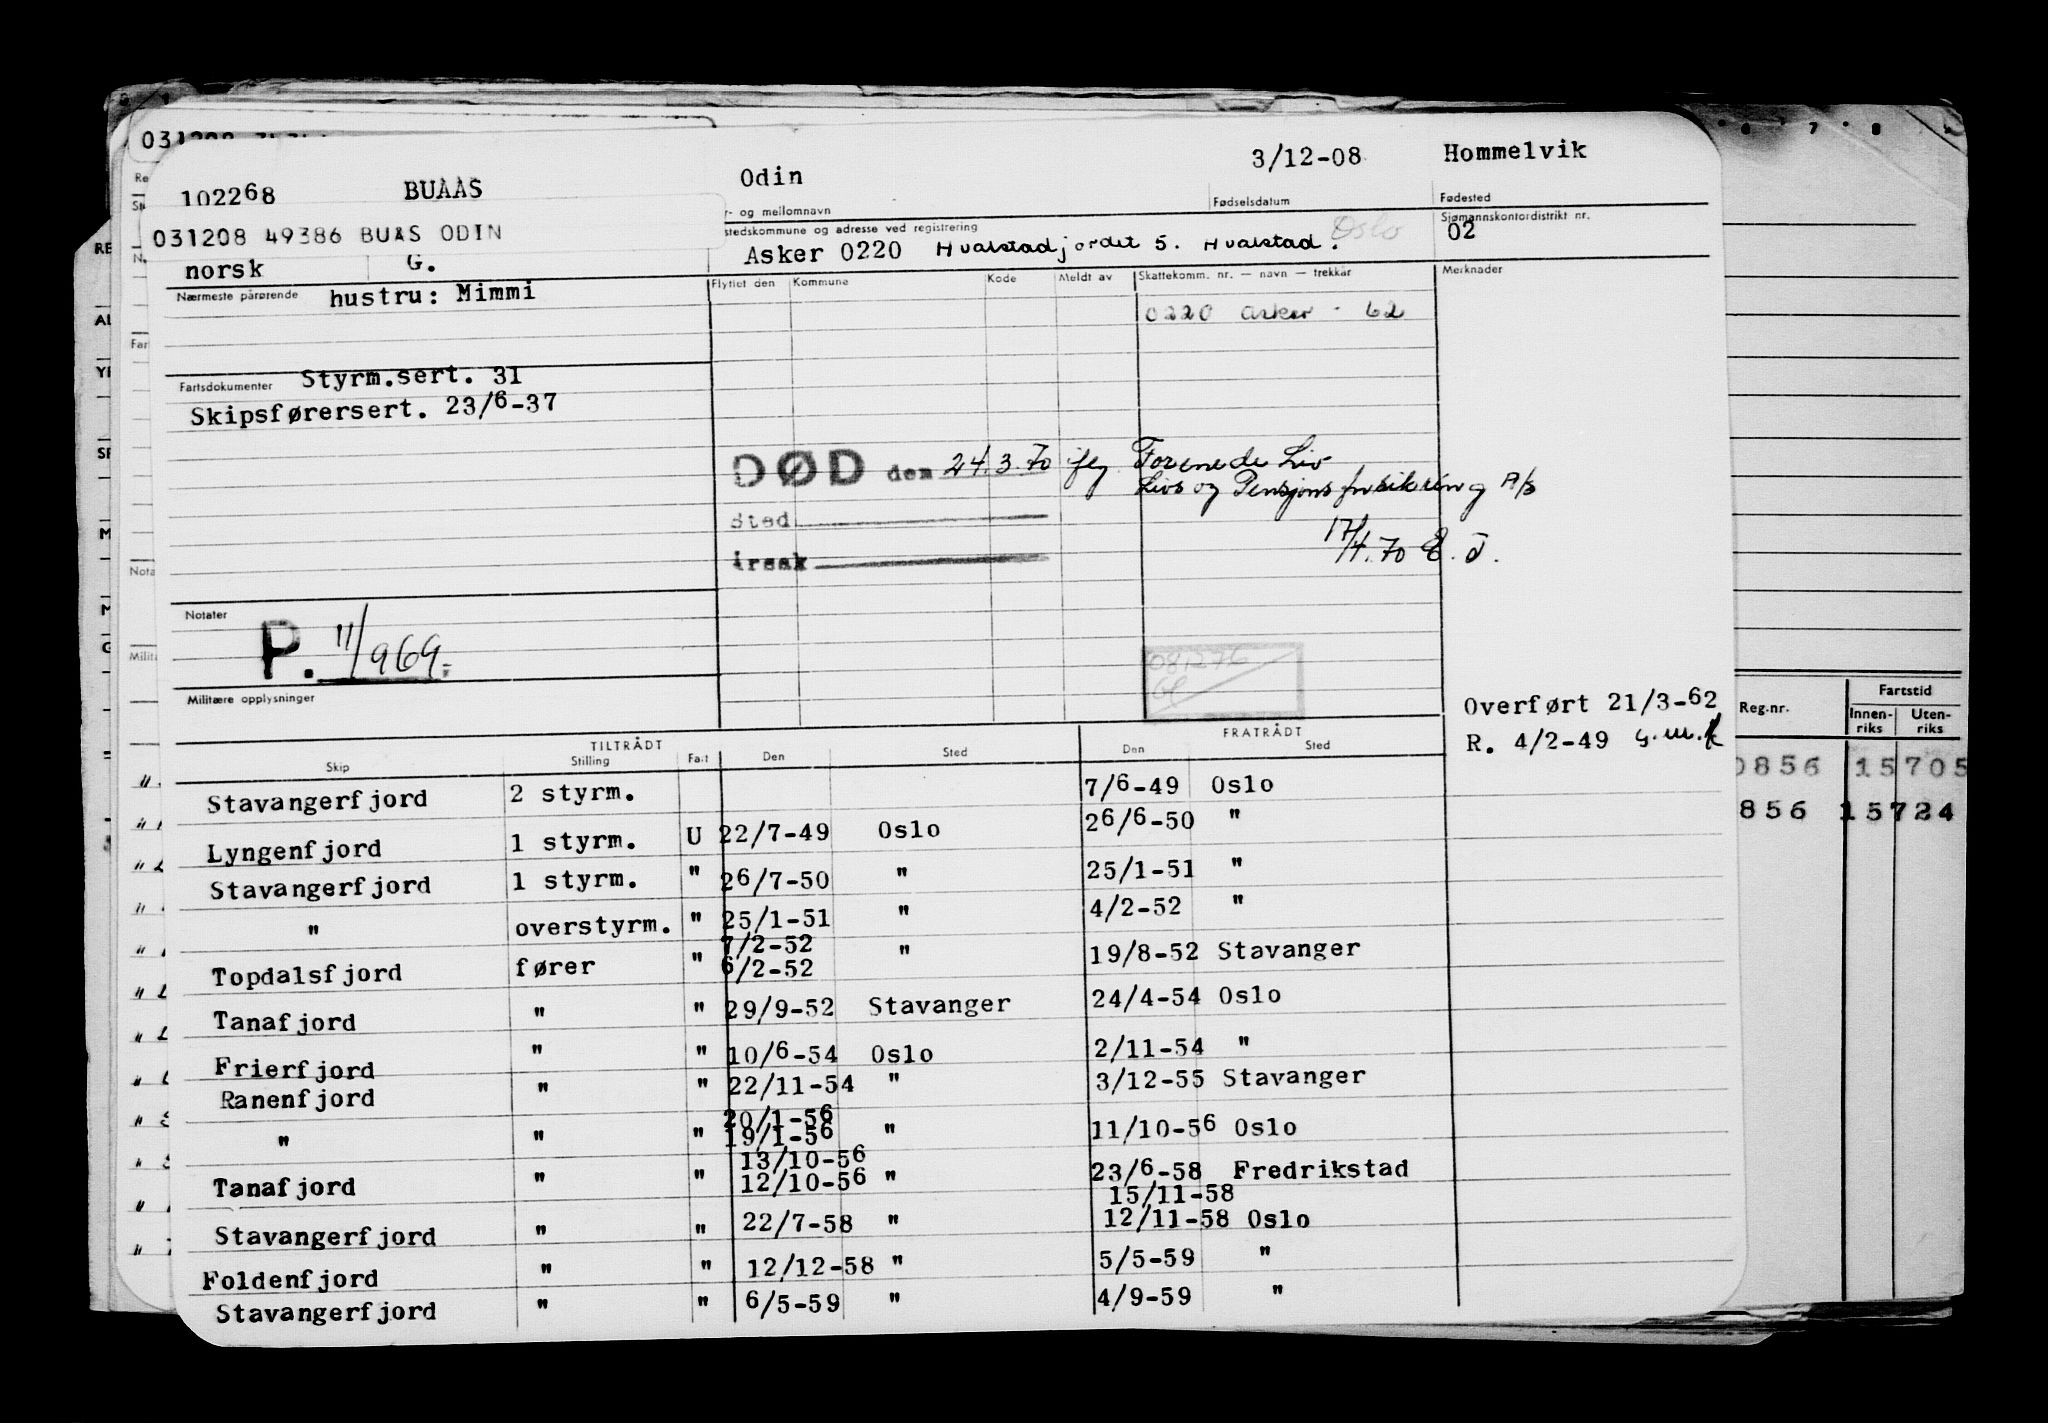 3/12-08 Hommelvik
102268 BUAAS Odin
r- og mellomnavn Fødselsdatum Fødested
031208 49386 BUAS ODIN
stedskommune og adresse ved registrering Oslo Sjømannskontordistrikt nr.
02
norsk G. Asker 0220 Hvalstadjordet 5. Hvalstad.
Nærmeste pårørende hustru: Mimmi
Flyttet den Kommune Kode Meldt av Skattekomm. nr. — navn — trekkår Merknader
0220 Asker - 62
Fartsdokumenter Styrm.sert. 31
Skipsførersert. 23/6-37
DØD den 24.3.70 iflg. Forenede Liv
Livs og Pensjonsforsikring A/S
Sted
årsak
17/4.70 E. J.
Notater
P. 11/969.
081276
Militære opplysninger
Overført 21/3-62
R. 4/2-49
TILTRÅDT FRATRÅDT
Skip Stilling Fart Den Sted Den Sted
Stavangerfjord 2 styrm. 7/6-49 Oslo
Lyngenfjord 1 styrm. U 22/7-49 Oslo 26/6-50 "
Stavangerfjord 1 styrm. " 26/7-50 " 25/1-51 "
" overstyrm. " 25/1-51 " 4/2-52 "
7/2-52
Topdalsfjord fører " 6/2-52 " 19/8-52 Stavanger
Tanafjord " " 29/9-52 Stavanger 24/4-54 Oslo
Frierfjord " " 10/6-54 Oslo 2/11-54 "
Ranenfjord " " 22/11-54 " 3/12-55 Stavanger
20/1-56
" " " 19/1-56 " 11/10-56 Oslo
13/10-56
Tanafjord " " 12/10-56 " 23/6-58 Fredrikstad
15/11-58
Stavangerfjord " " 22/7-58 " 12/11-58 Oslo
Foldenfjord " " 12/12-58 " 5/5-59 "
Stavangerfjord " " 6/5-59 " 4/9-59 "
Reg.nr. Fartstid
Innen-riks Uten-riks
0856 15705
856 15724